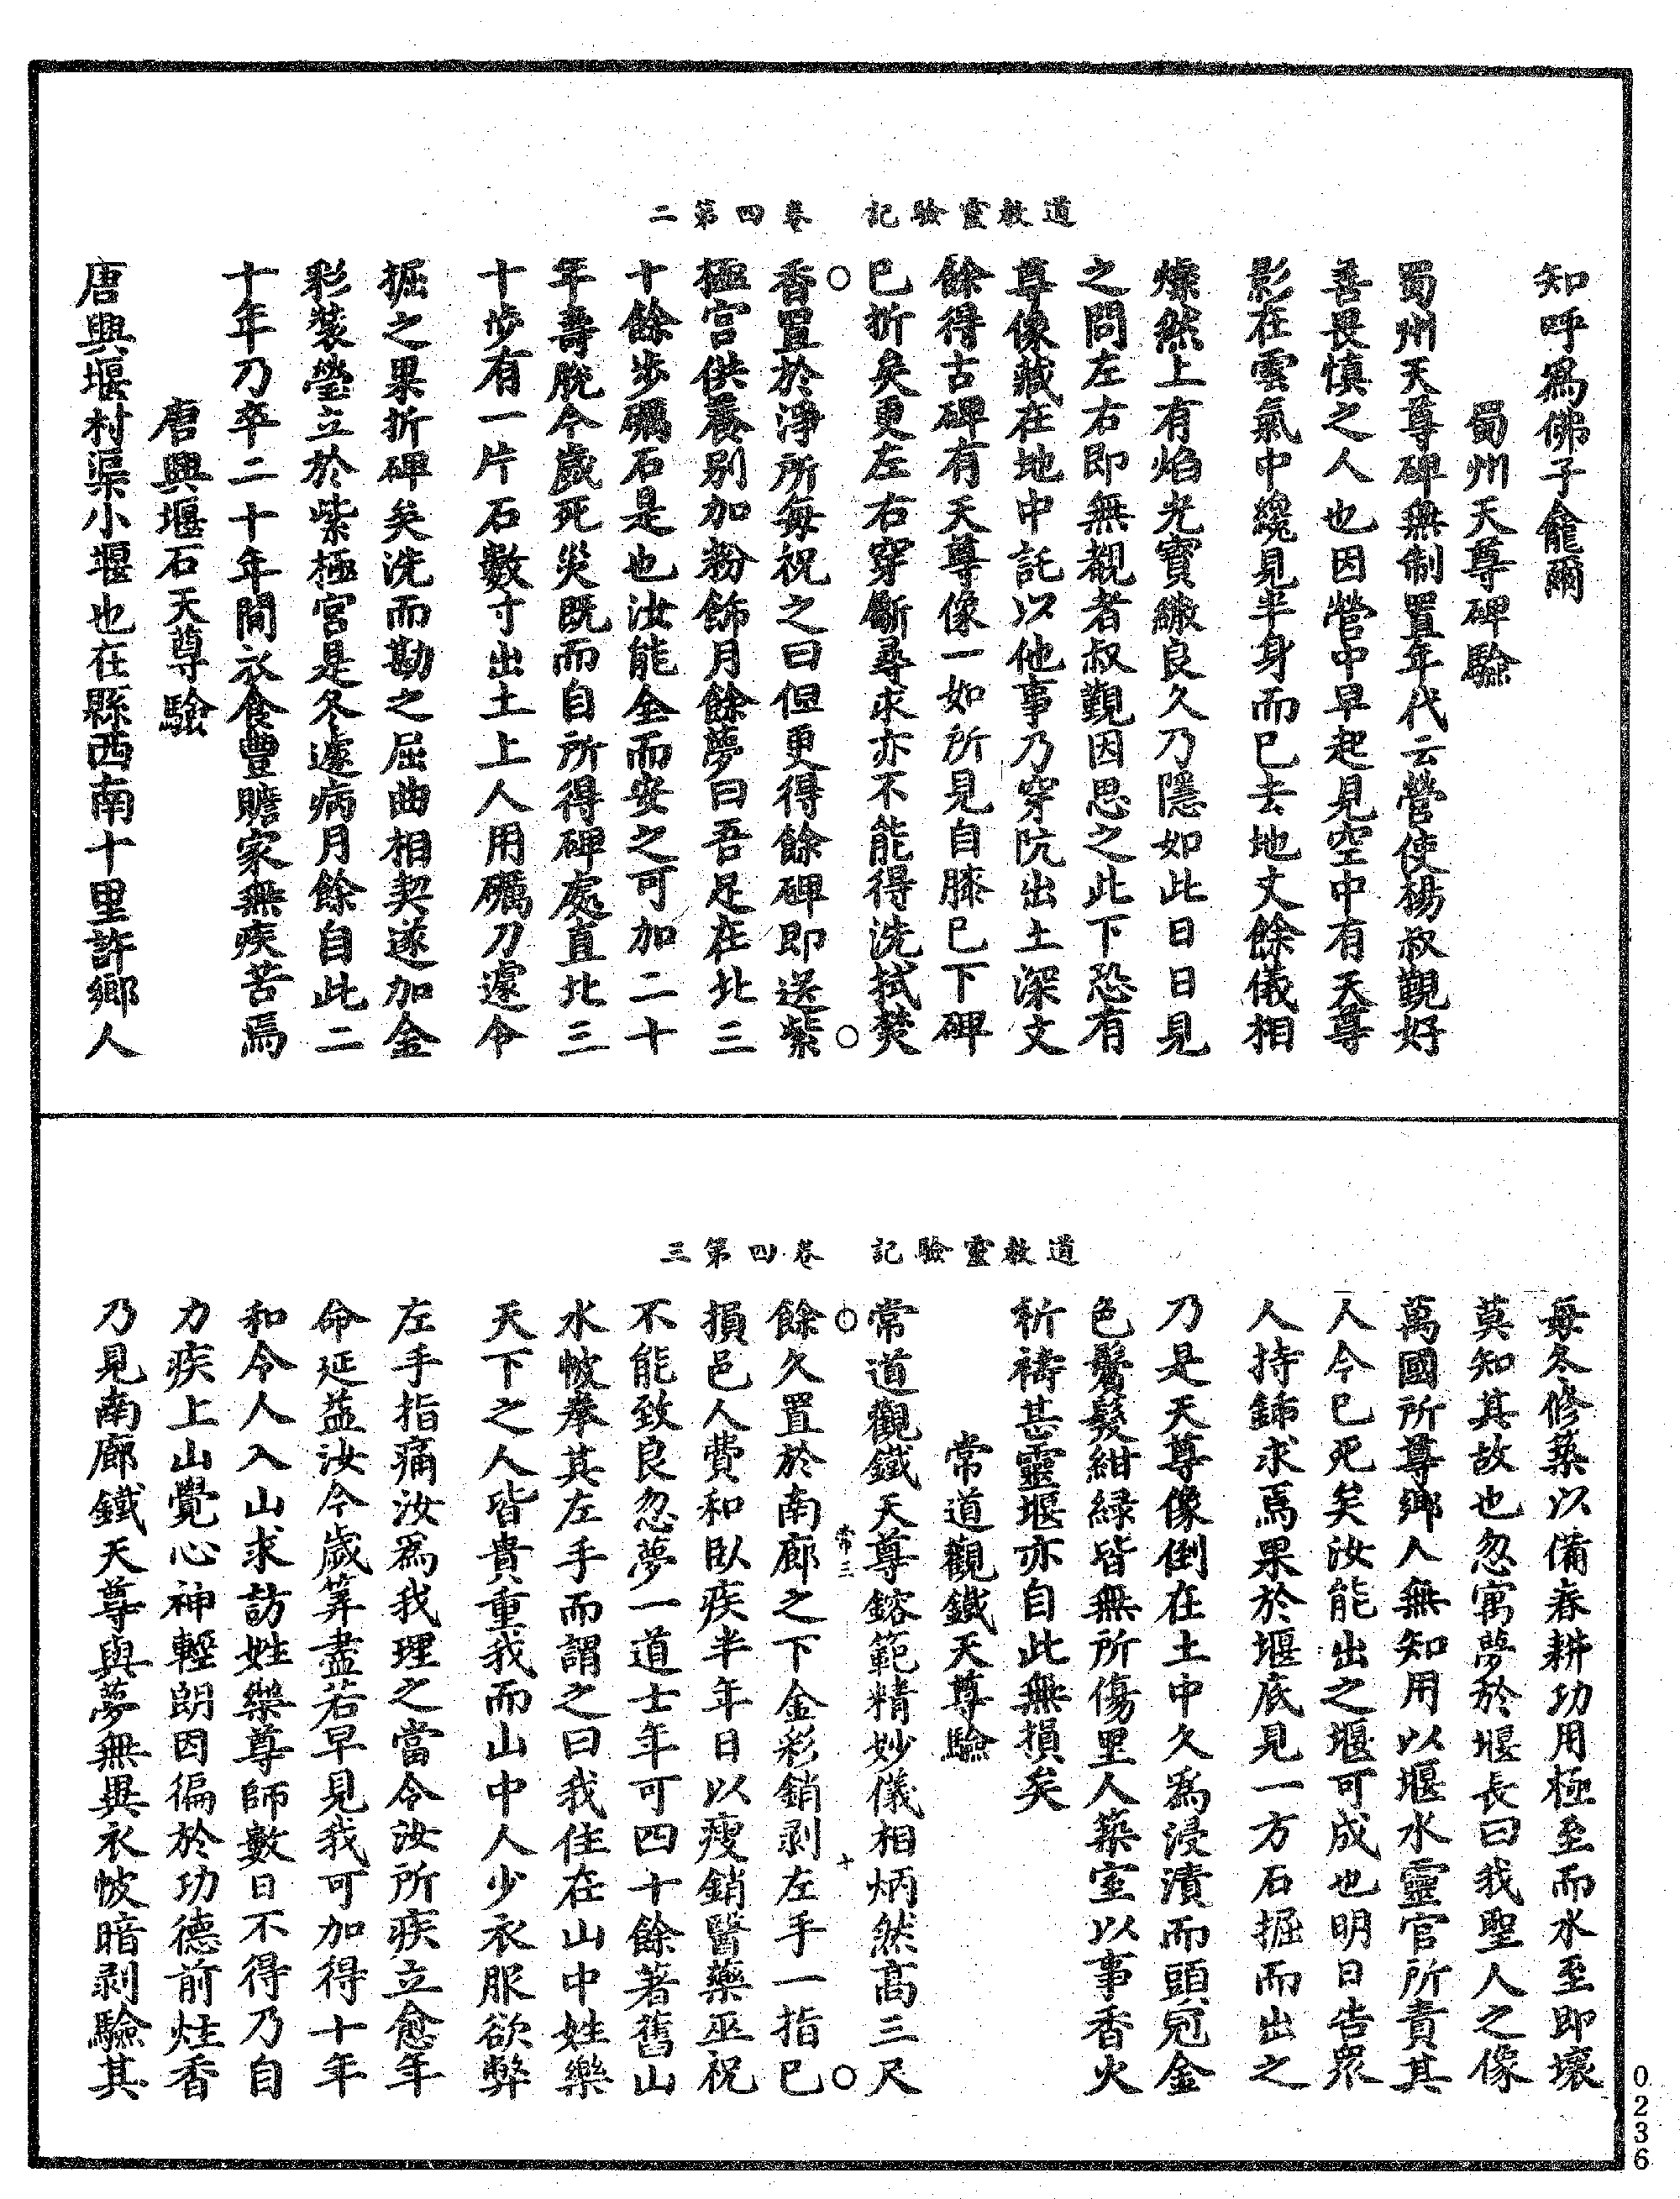 道教靈驗記　卷四第二
知呼爲佛子龕爾
蜀州天尊碑驗
蜀州天尊碑無制置年代云營使楊叔觀好
善畏慎之人也因營中早起見空中有天尊
影在雲氣中纔見半身而已去地丈餘儀相
燦然上有焰光寶繖良久乃隱如此日日見
之問左右即無覩者叔觀因思之此下恐有
尊像藏在地中託以他事乃穿阬出土深丈
餘得古碑有天尊像一如所見自膝已下碑
已折矣更左右穿斸尋求亦不能得洗拭焚
香置於淨所每祝之曰但更得餘碑即送紫
極宮供養別加粉飾月餘夢曰吾足在北三
十餘步礪石是也汝能全而安之可加二十
年壽脫今歲死災既而自所得碑處直北三
十步有一片石數寸出土上人用礪刀遽令
掘之果折碑矣洗而勘之屈曲相契遂加金
彩裝瑩立於紫極宮是冬遽病月餘自此二
十年乃卒二十年間衣食豐贍家無疾苦焉
唐興堰石天尊驗
唐興堰村渠小堰也在縣西南十里許鄉人
道教靈驗記　卷四第三
每冬修築以備春耕功用極至而水至即壞
莫知其故也忽寓夢於堰長曰我聖人之像
萬國所尊鄉人無知用以堰水靈官所責其
人今已死矣汝能出之堰可成也明日告眾
人持鍤求焉果於堰底見一方石掘而出之
乃是天尊像倒在土中久爲浸漬而頭冠金
色鬢髮紺緑皆無所傷里人築室以事香火
祈禱甚靈堰亦自此無損矣
常道觀鐵天尊驗
常道觀鐵天尊鎔範精妙儀相炳然高三尺
常三　十
餘久置於南廊之下金彩銷剥左手一指已
損邑人費和臥疾半年日以瘦銷醫藥巫祝
不能致良忽夢一道士年可四十餘著舊山
水帔奉其左手而謂之曰我住在山中姓樂
天下之人皆貴重我而山中人少衣服欲弊
左手指痛汝爲我理之當令汝所疾立愈年
命延益汝今歲筭盡若早見我可加得十年
和令人入山求訪姓樂尊師數日不得乃自
力疾上山覺心神輕朗因徧於功德前炷香
乃見南廊鐵天尊與夢無異衣帔暗剥驗其
0236